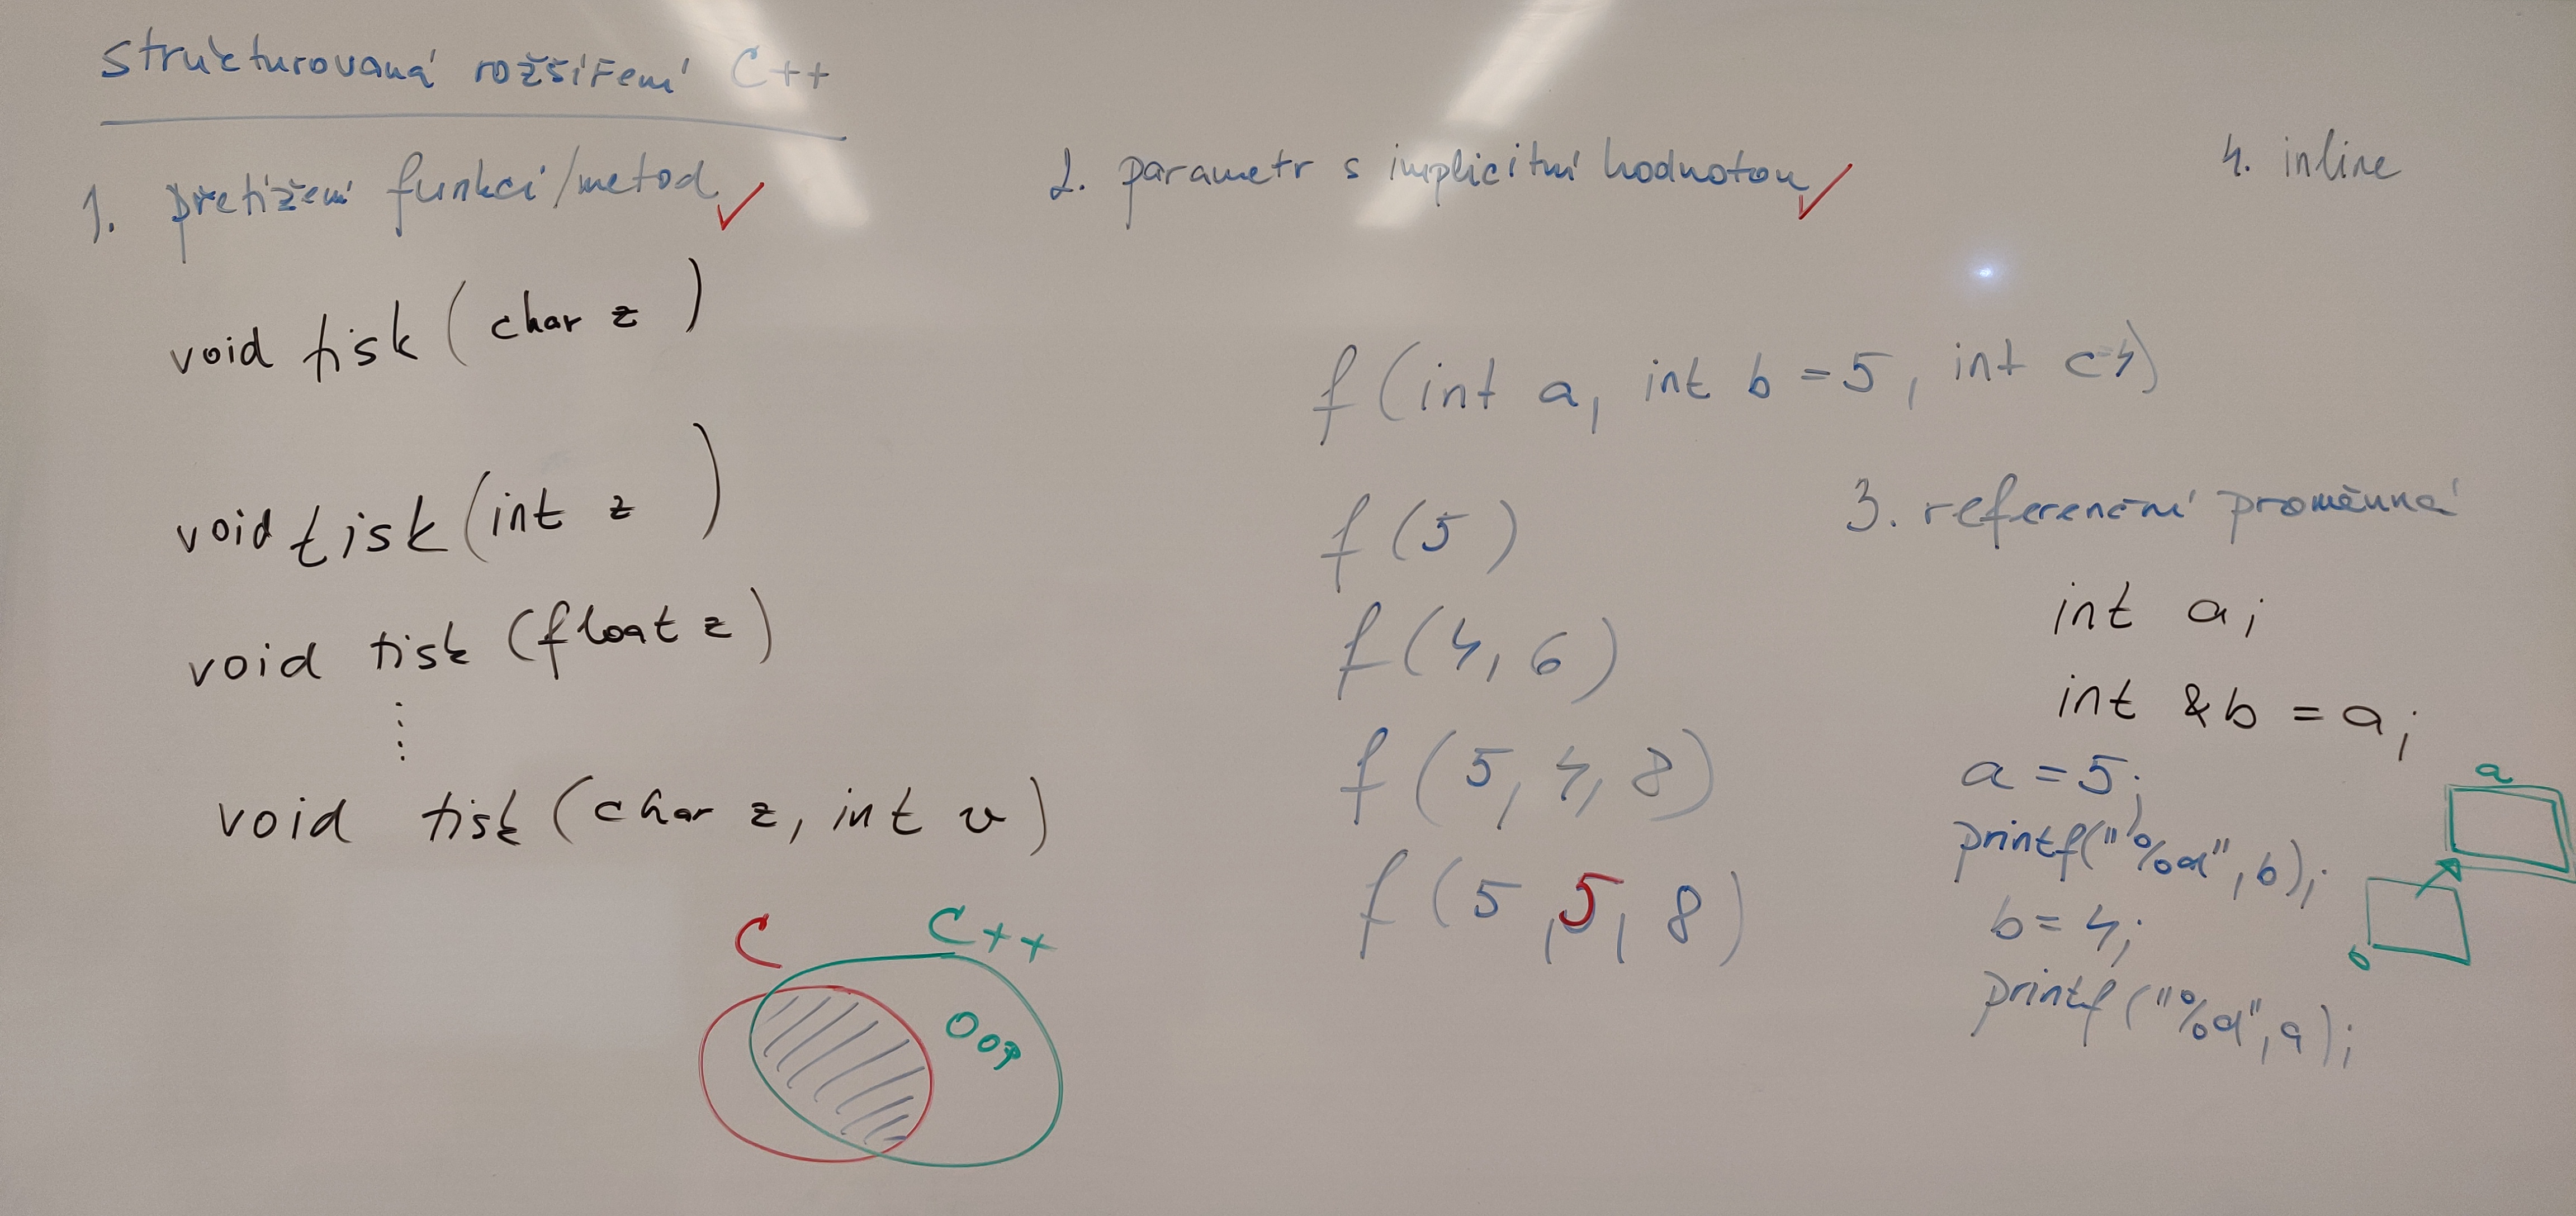 Strukturovaná rozšíření C++
1. přetížení funkcí/metod ✓
void tisk ( char z )
void tisk (int z )
void tisk (float z)
⋮
void tisk (char z, int v)
C
C++
OOP
2. parametr s implicitní hodnotou ✓
f (int a, int b = 5, int c=4)
f (5)
f (4, 6)
f (5, 4, 8)
f (5, 5, 8)
4. inline
3. referenční proměnná
int a;
int &b = a;
a = 5;
printf("%d", b);
b = 4;
printf ("%d", a);
a
b